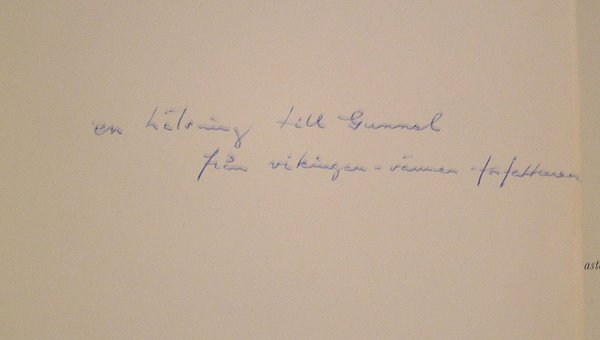 en hälsning till Gunnel
från vikingen-vännen-författaren